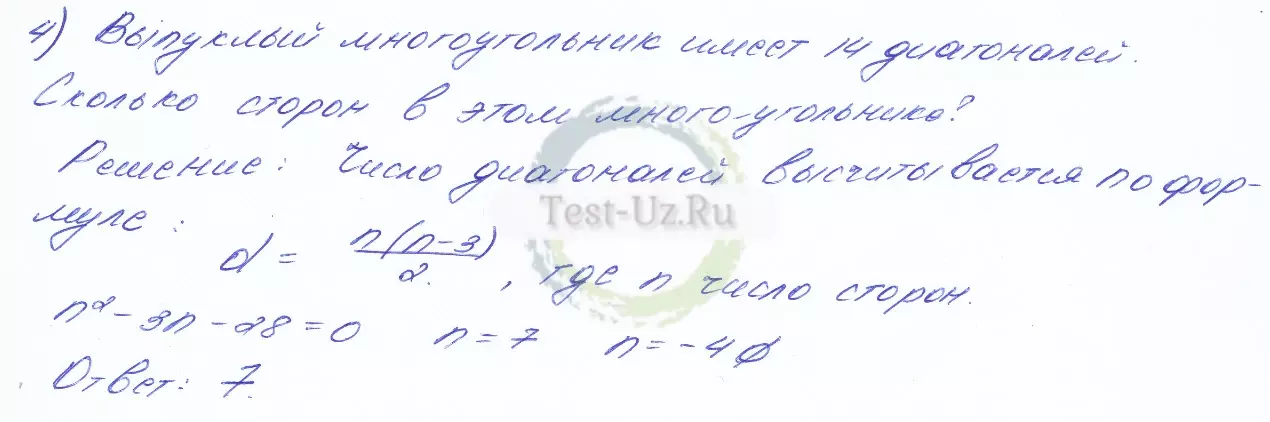 4) Выпуклый многоугольник имеет 14 диагоналей.
Сколько сторон в этом много-угольнике?
Решение: Число диагоналей высчитывается по фор-
муле:
d = n(n-3)/2, где n число сторон.
n²-3n-28=0 n=7 n=-4 ∅
Ответ: 7.
Test-Uz.Ru